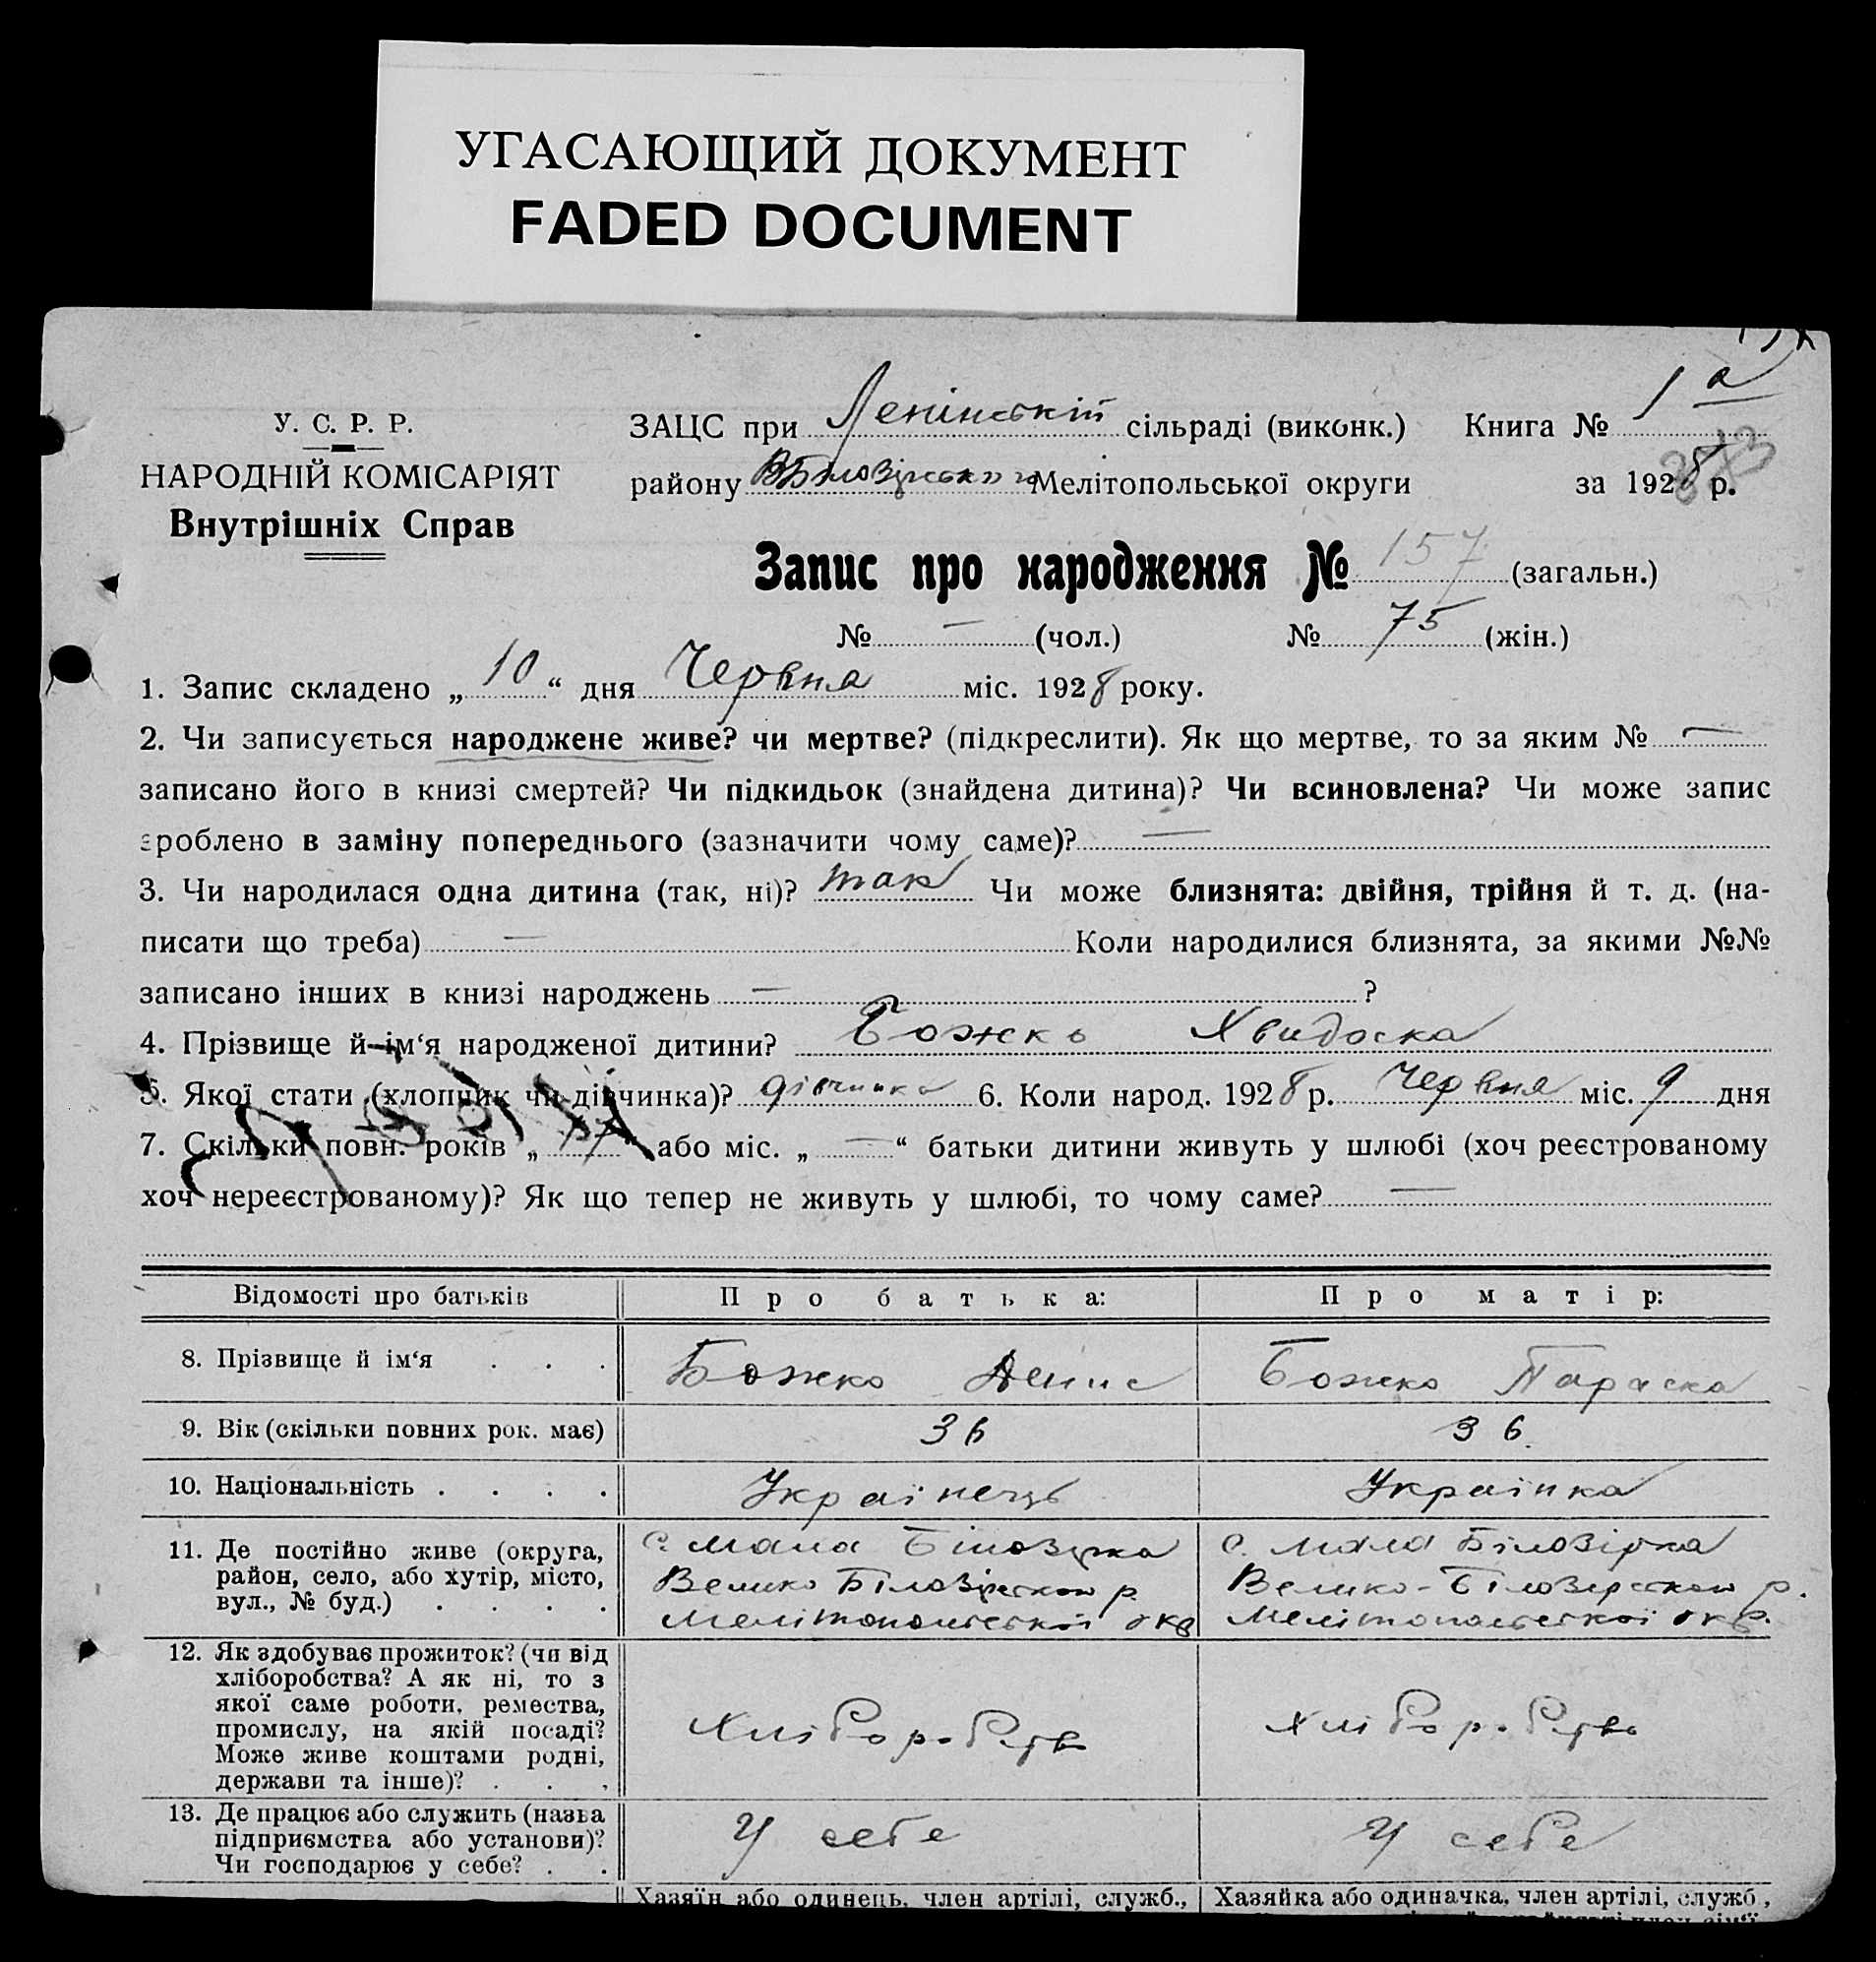 УГАСАЮЩИЙ ДОКУМЕНТ
FADED DOCUMENT
У. С. Р. Р.
НАРОДНІЙ КОМІСАРІЯТ
Внутрішніх Справ
ЗАЦС при Ленінській сільраді (виконк.) Книга № 1а
району ВБілозірського Мелітопольської округи за 1928 р.
Запис про народження № 157 (загальн.)
№ — (чол.) № 75 (жін.)
1. Запис складено „10“ дня Червня міс. 1928 року.
2. Чи записується народжене живе? чи мертве? (підкреслити). Як що мертве, то за яким № —
записано його в книзі смертей? Чи підкидьок (знайдена дитина)? Чи всиновлена? Чи може запис
зроблено в заміну попереднього (зазначити чому саме)? —
3. Чи народилася одна дитина (так, ні)? так Чи може близнята: двійня, трійня й т. д. (на-
писати що треба) — Коли народилися близнята, за якими №№
записано інших в книзі народжень — ?
4. Прізвище й ім‘я народженої дитини? Божко Хвидоска
5. Якої стати (хлопчик чи дівчинка)? дівчинка 6. Коли народ. 1928 р. Червня міс. 9 дня
7. Скільки повн. років „17“ або міс. „—“ батьки дитини живуть у шлюбі (хоч реєстрованому
хоч нереєстрованому)? Як що тепер не живуть у шлюбі, то чому саме? —
Відомості про батьків Про батька: Про матір:
8. Прізвище й ім‘я . . . Божко Денис Божко Параска
9. Вік (скільки повних рок. має) 36 36.
10. Національність . . . . Українець Українка
11. Де постійно живе (округа,
район, село, або хутір, місто,
вул., № буд.) . . . .
с. Мала Білозірка
Велико Білозірського р.
Мелітопольської окр
с. Мала Білозірка
Велико-Білозірського р.
Мелітопольської окр.
12. Як здобуває прожиток? (чи від
хліборобства? А як ні, то з
якої саме роботи, ремества,
промислу, на якій посаді?
Може живе коштами родні,
держави та інше)? . . .
Хліборобств
Хліборобство
13. Де працює або служить (назва
підприємства або установи)?
Чи господарює у себе? . .
У себе
У себе
Хазяїн або одинець, член артілі, служб.,
Хазяйка або одиначка, член артілі, служб.,